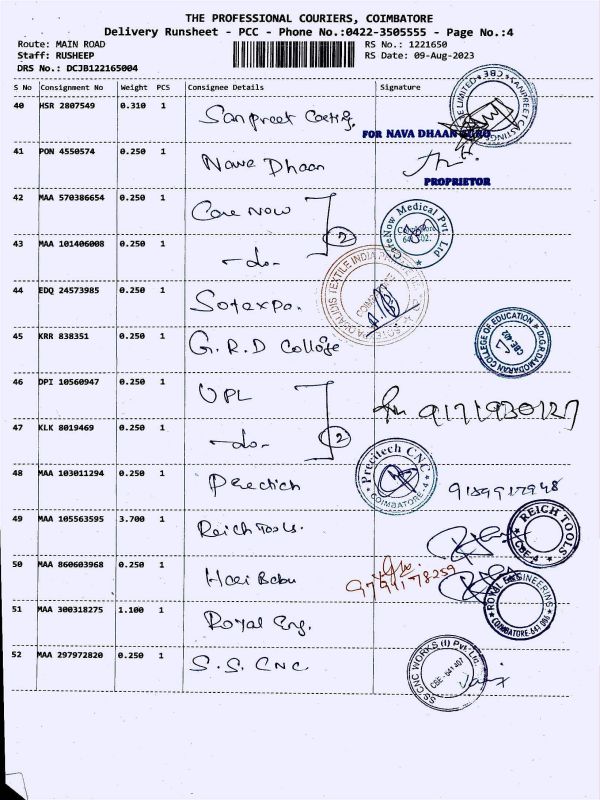 THE PROFESSIONAL COURIERS, COIMBATORE
Delivery Runsheet - PCC - Phone No.:0422-3505555 - Page No.:4
Route: MAIN ROAD
Staff: RUSHEEP
DRS No.: DCJB122165004
RS No.: 1221650
RS Date: 09-Aug-2023
S No Consignment No Weight PCS Consignee Details Signature
40 HSR 2807549 0.310 1 Sanpreet Casting
FOR NAVA DHAAN
41 PON 4550574 0.250 1 Nava Dhaan
PROPRIETOR
42 MAA 570386654 0.250 1 Care Now
2
CareNow Medical Pvt Ltd
43 MAA 101406008 0.250 1 -do-
44 EDQ 24573985 0.250 1 Sotexpa.
TEXTILE INDIA
45 KRR 838351 0.250 1 G.R.D College
Dr.G.R.DAMODARAN COLLEGE OF EDUCATION
CBE-402
46 DPI 10560947 0.250 1 UPL
9171930127
47 KLK 8019469 0.250 1 -do-
2
48 MAA 103011294 0.250 1 Prectich
Precitech CNC
COIMBATORE-4
49 MAA 105563595 3.700 1 Reich Tools.
REICH TOOLS
CBE-4
50 MAA 860603968 0.250 1 Hari Babu
51 MAA 300318275 1.100 1 Royal Eng.
ROYAL ENGINEERING
COIMBATORE-641
52 MAA 297972820 0.250 1 S.S. CNC
SS CNC WORKS (I) Pvt. Ltd.
CBE-641 407